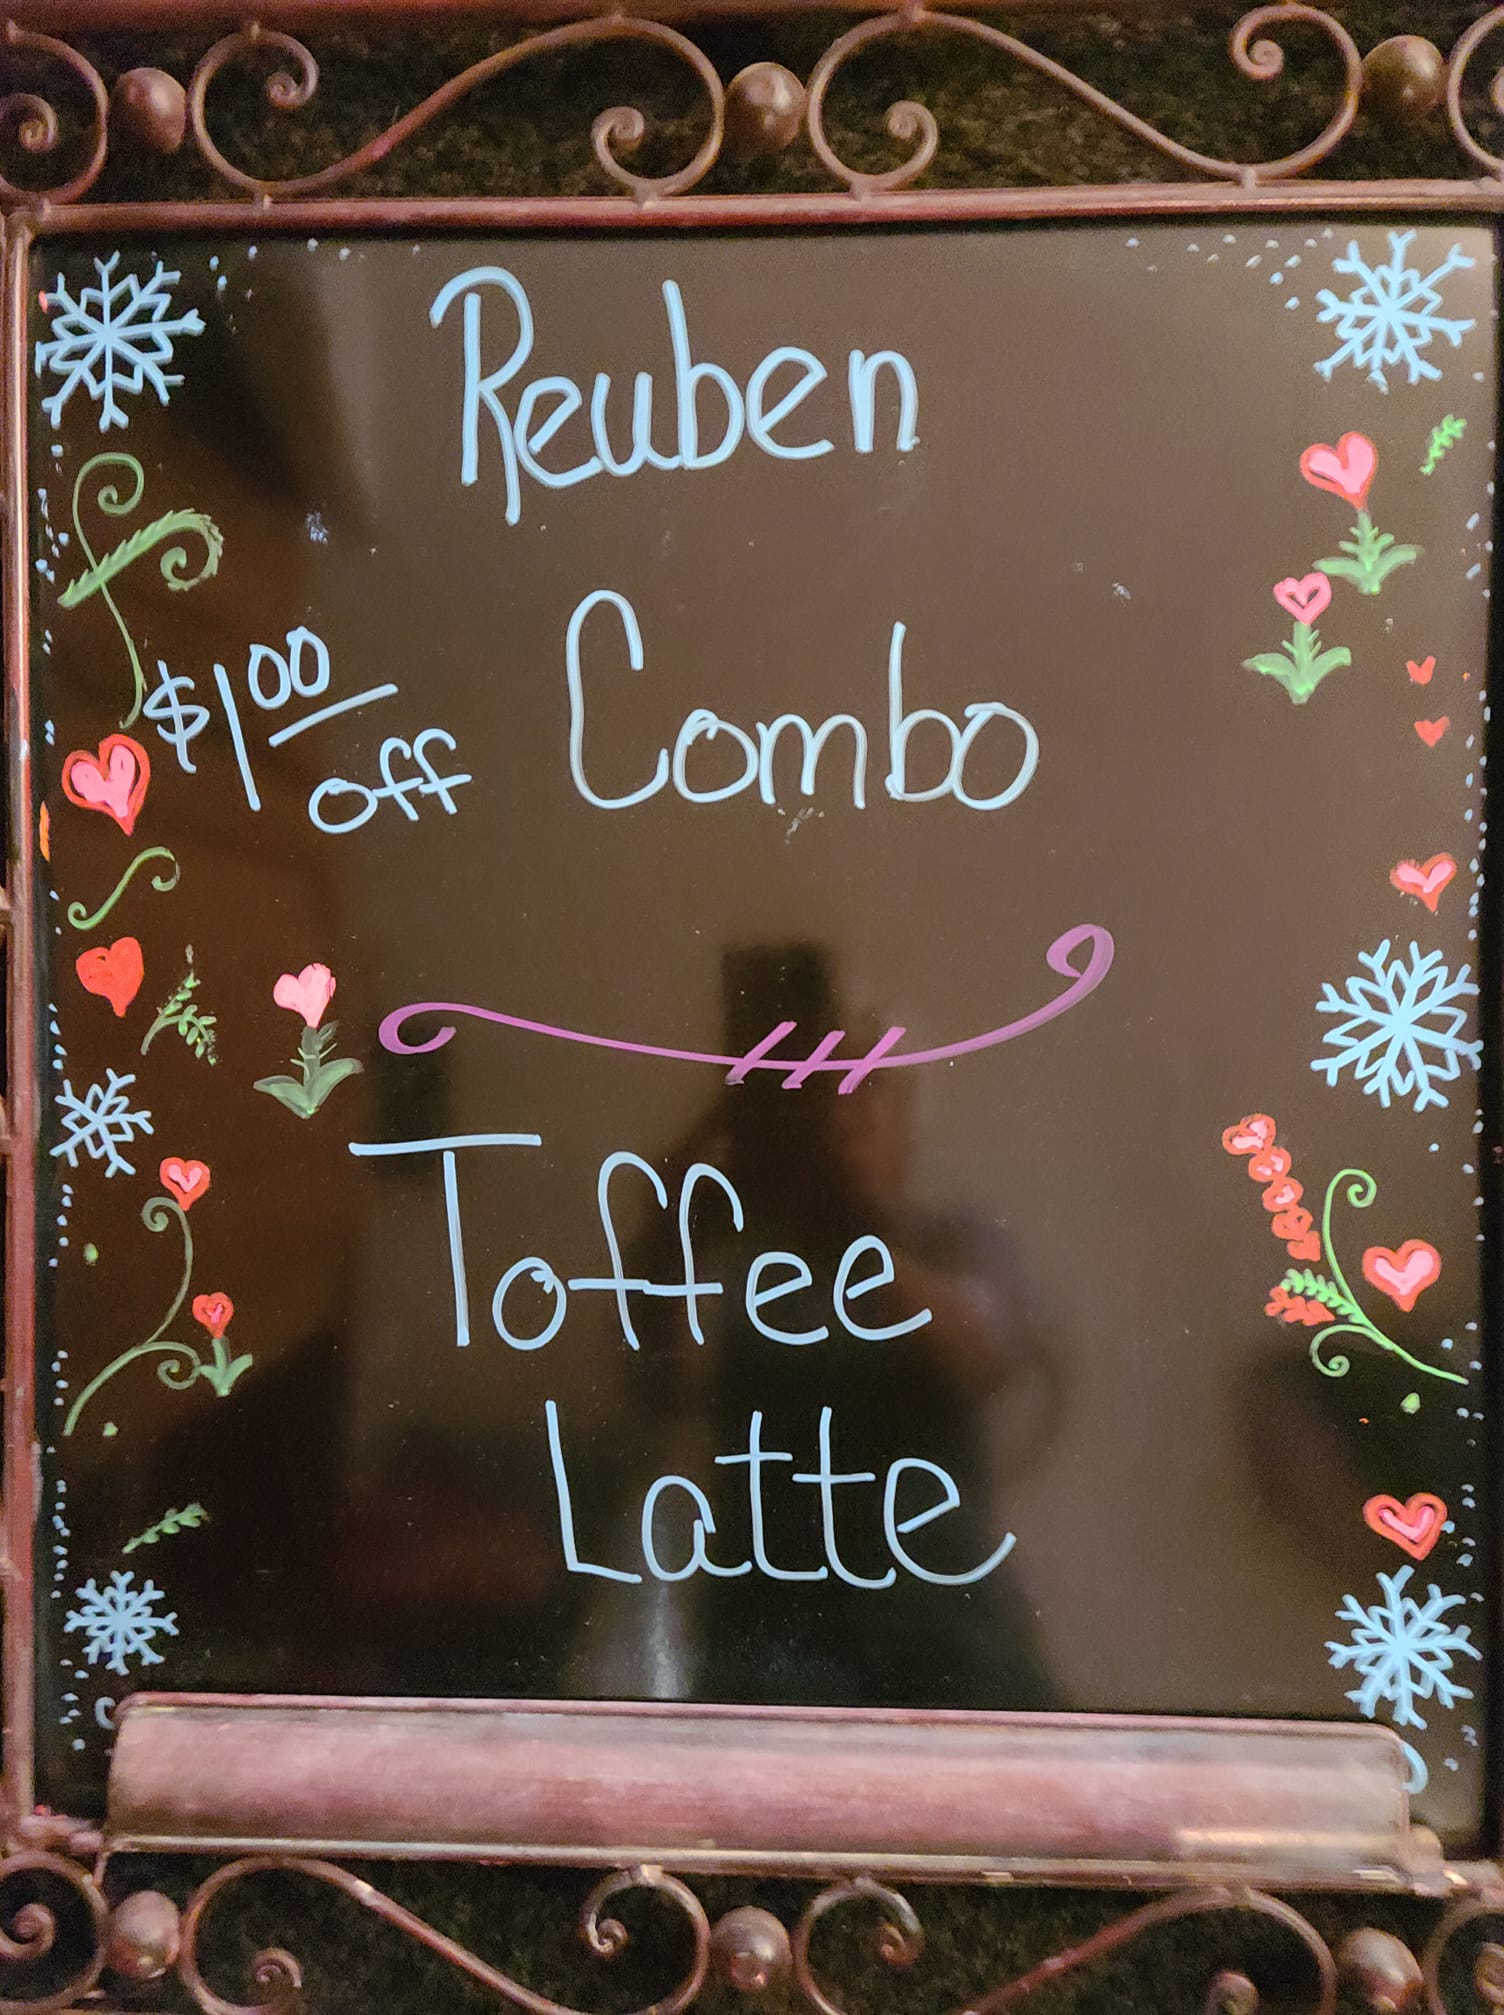 Reuben
$1.00 off Combo
Toffee
Latte